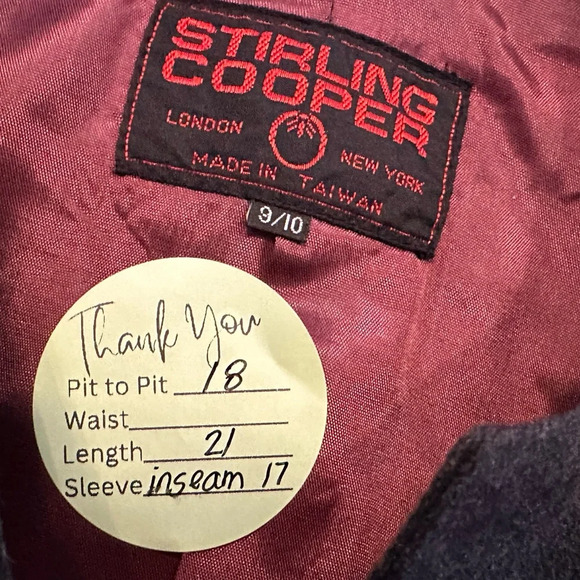 STIRLING
COOPER
LONDON NEW YORK
MADE IN TAIWAN
9/10
Thank You
Pit to Pit 18
Waist
Length 21
Sleeve inseam 17